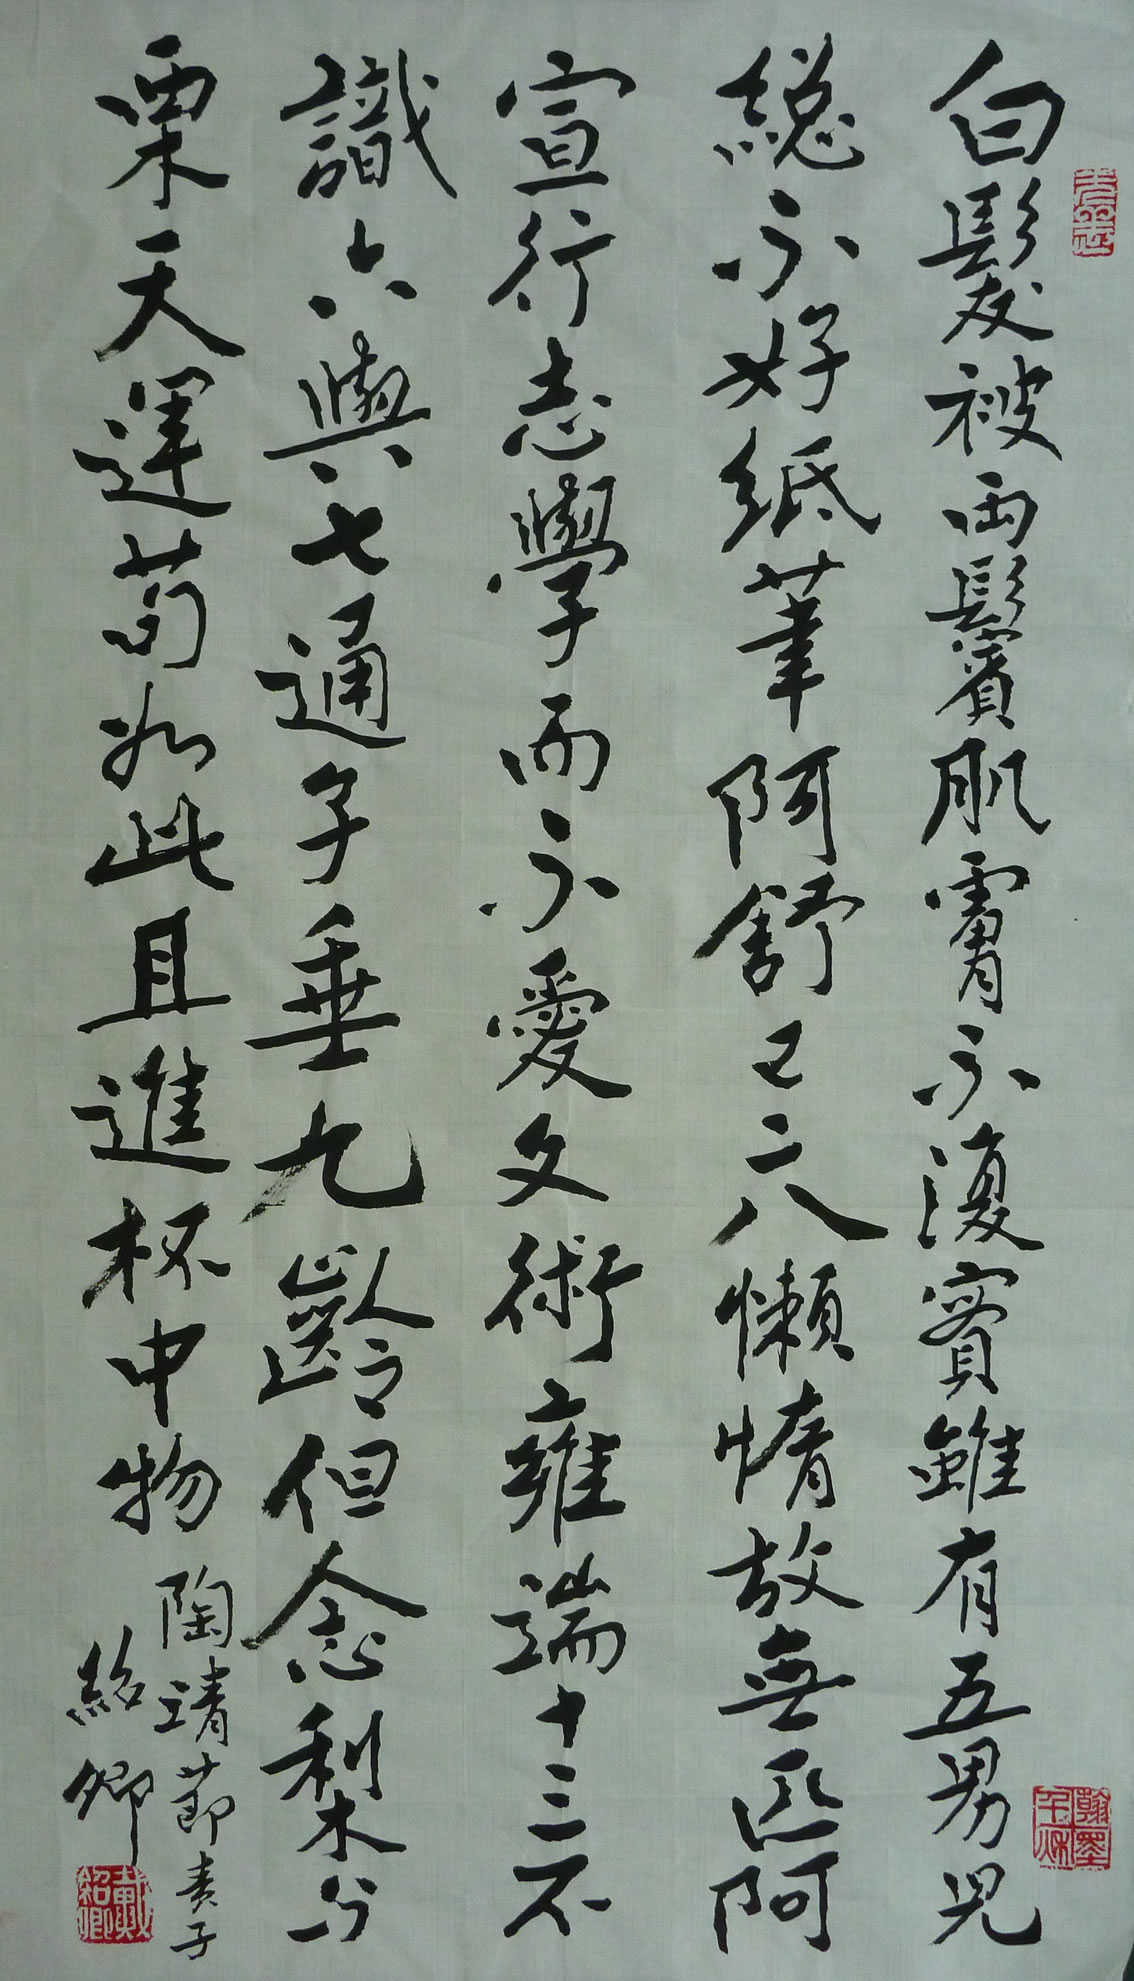 白髮被兩鬢肌膚不復實雖有五男兒
總不好紙筆阿舒已二八懶惰故無匹阿
宣行志學而不愛文術雍端十三不
識六與七通子垂九齡但念梨与
栗天運苟如此且進杯中物
陶靖節責子
紹卿
戴紹卿
翰墨千秋